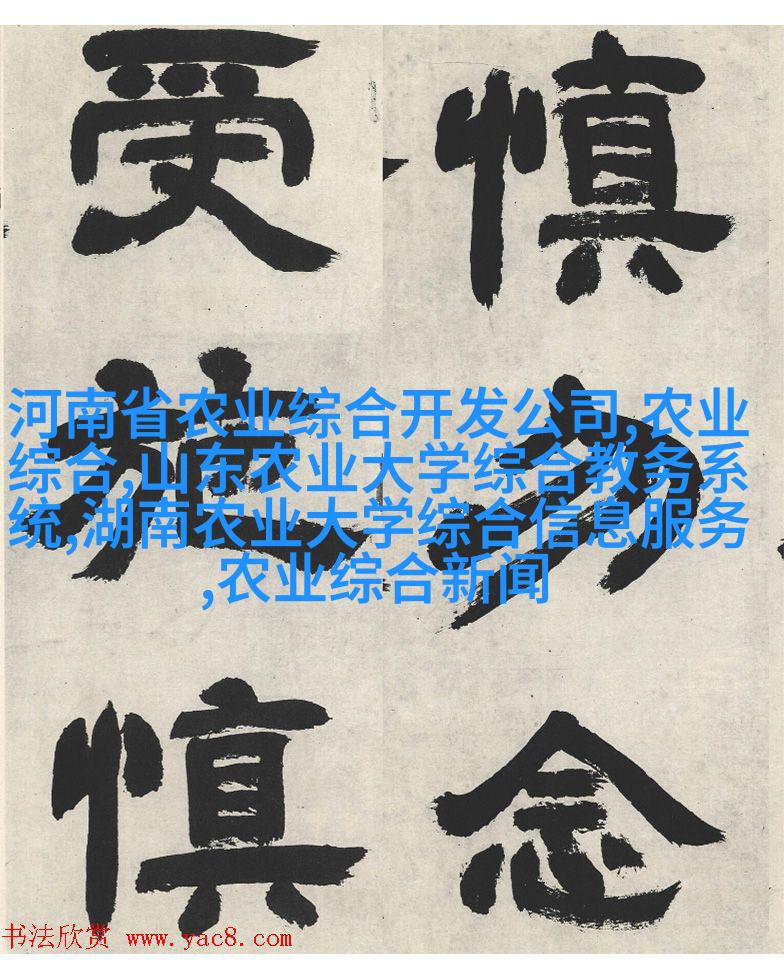 慎勿念
受施慎
河南省农业综合开发公司,农业
综合,山东农业大学综合教务系
统,湖南农业大学综合信息服务
,农业综合新闻
书法欣赏 www.yac8.com